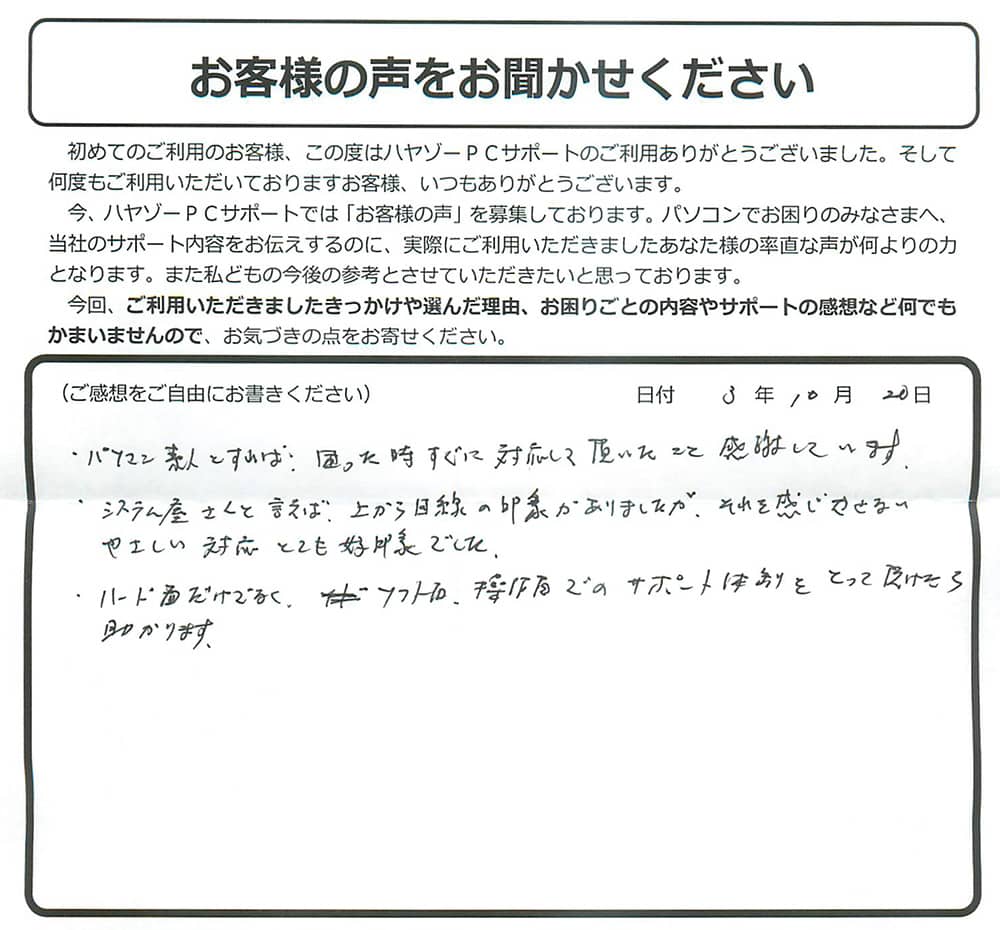 お客様の声をお聞かせください
初めてのご利用のお客様、この度はハヤゾーPCサポートのご利用ありがとうございました。そして
何度もご利用いただいておりますお客様、いつもありがとうございます。
今、ハヤゾーPCサポートでは「お客様の声」を募集しております。パソコンでお困りのみなさまへ、
当社のサポート内容をお伝えするのに、実際にご利用いただきましたあなた様の率直な声が何よりの力
となります。また私どもの今後の参考とさせていただきたいと思っております。
今回、ご利用いただきましたきっかけや選んだ理由、お困りごとの内容やサポートの感想など何でも
かまいませんので、お気づきの点をお寄せください。
(ご感想をご自由にお書きください) 日付 3 年 10 月 20 日
・パソコン素人とすれば、困った時すぐに対応して頂いたこと感謝しています。
・システム屋さんと言えば、上から目線の印象がありましたが、それを感じさせない
やさしい対応とても好印象でした。
・ハード面だけでなく、ソフト面、操作面でのサポート体制をとって頂けたら
助かります。